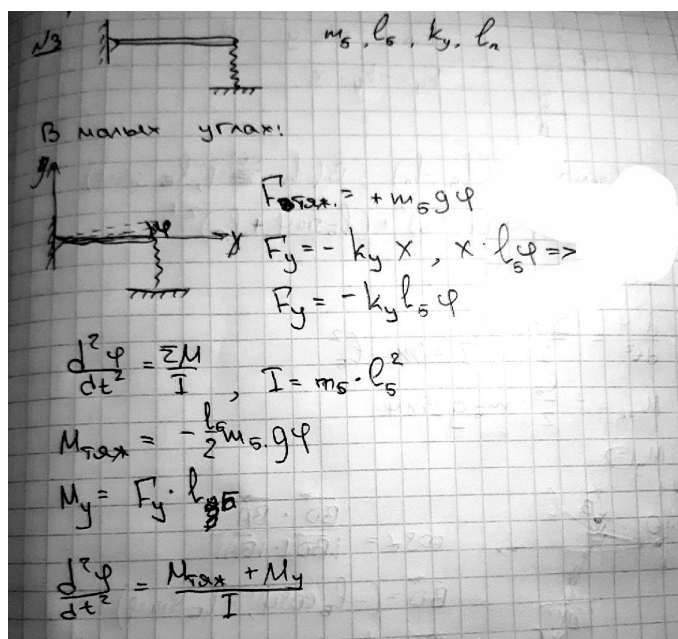 №3 m₅, l₅, kᵧ, lₙ
В малых углах:
y
φ
x
Fтяж. = + m₅gφ
Fу = - kу x, x · l₅φ =>
Fу = - kу l₅ φ
d²φ/dt² = ΣM/I, I = m₅ · l₅²
Mтяж = - l₅/2 m₅ · gφ
Mу = Fу · lБ
d²φ/dt² = (Mтяж + Mу)/I